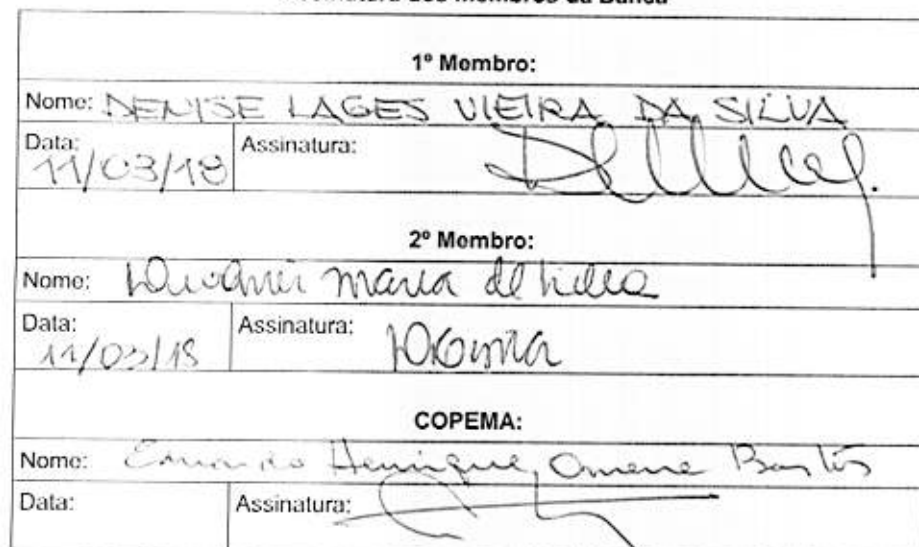 membros da Banca
1º Membro:
Nome: DENISE LAGES VIEIRA DA SILVA
Data: 11/03/18 Assinatura:
2º Membro:
Nome: maria
Data: 11/03/18 Assinatura:
COPEMA:
Nome: Henrique Omena Bastos
Data: Assinatura: